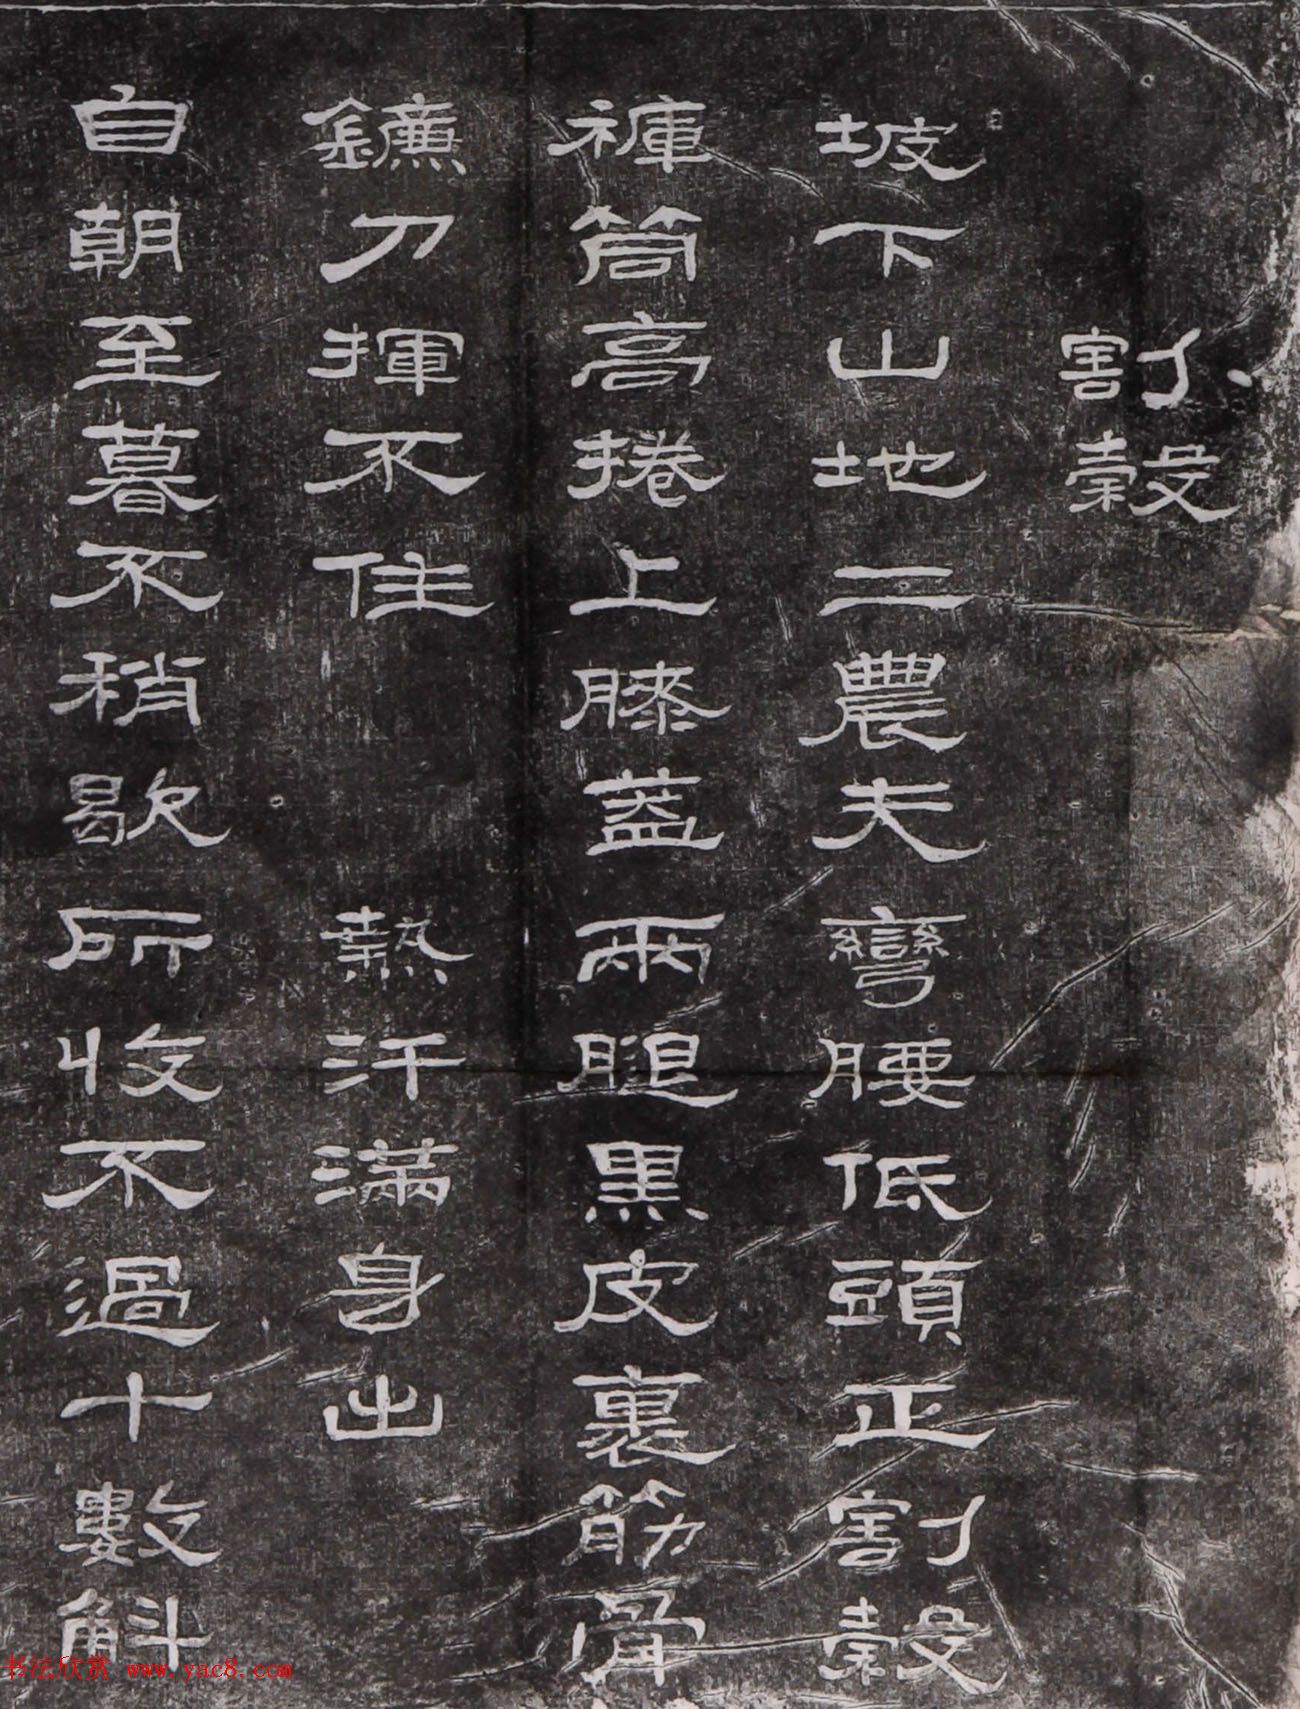 割穀
坡下山地二農夫彎腰低頭正割穀
褲筒高捲上膝蓋兩腿黑皮裹筋骨
鐮刀揮不住 熱汗滿身出
自朝至暮不稍歇所收不過十數斛
书法欣赏 www.yac8.com